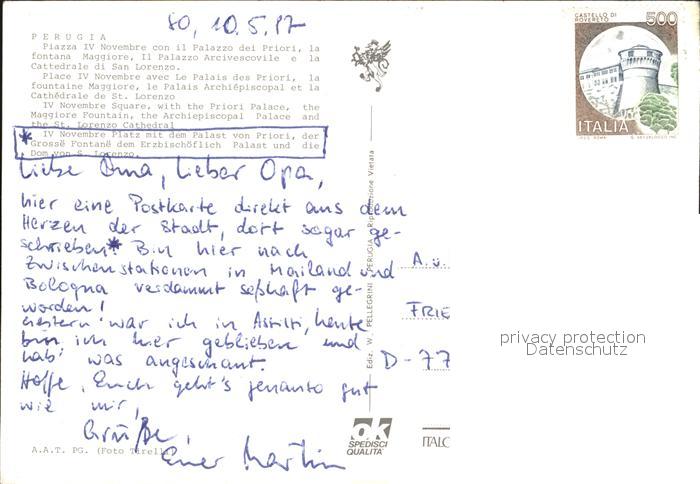 So, 10.5.87
PERUGIA
Piazza IV Novembre con il Palazzo dei Priori, la
fontana Maggiore, Il Palazzo Arcivescovile e la
Cattedrale di San Lorenzo.
Place IV Novembre avec Le Palais des Priori, la
fountaine Maggiore, le Palais Archiépiscopal et la
Cathédrale de St. Lorenzo
IV Novembre Square, with the Priori Palace, the
Maggiore Fountain, the Archiepiscopal Palace and
the St. Lorenzo Cathedral
* IV Novembre Platz mit dem Palast von Priori, der
Grossë Fontanë dem Erzbischöflich Palast und die
Dom von S. Lorenzo.
Liebe Oma, Lieber Opa,
hier eine Postkarte direkt aus dem
Herzen der Stadt, dort sogar ge-
schrieben!* Bin hier nach
Zwischenstationen in Mailand und
Bologna verdammt seßhaft ge-
worden!
Gestern war ich in Assisi, heute
bin ich hier geblieben und
hab' was angeschaut.
Hoffe, Euch geht's genauso gut
wie mir,
Grüße,
Euer Martin
A.A.T. PG. (Foto Tirelli)
Ediz. W. PELLEGRINI - PERUGIA - Riproduzione Vietata
ok
SPEDISCI
QUALITA'
ITALC
CASTELLO DI
ROVERETO
500
ITALIA
A. u.
FRIE
D-77
privacy protection
Datenschutz